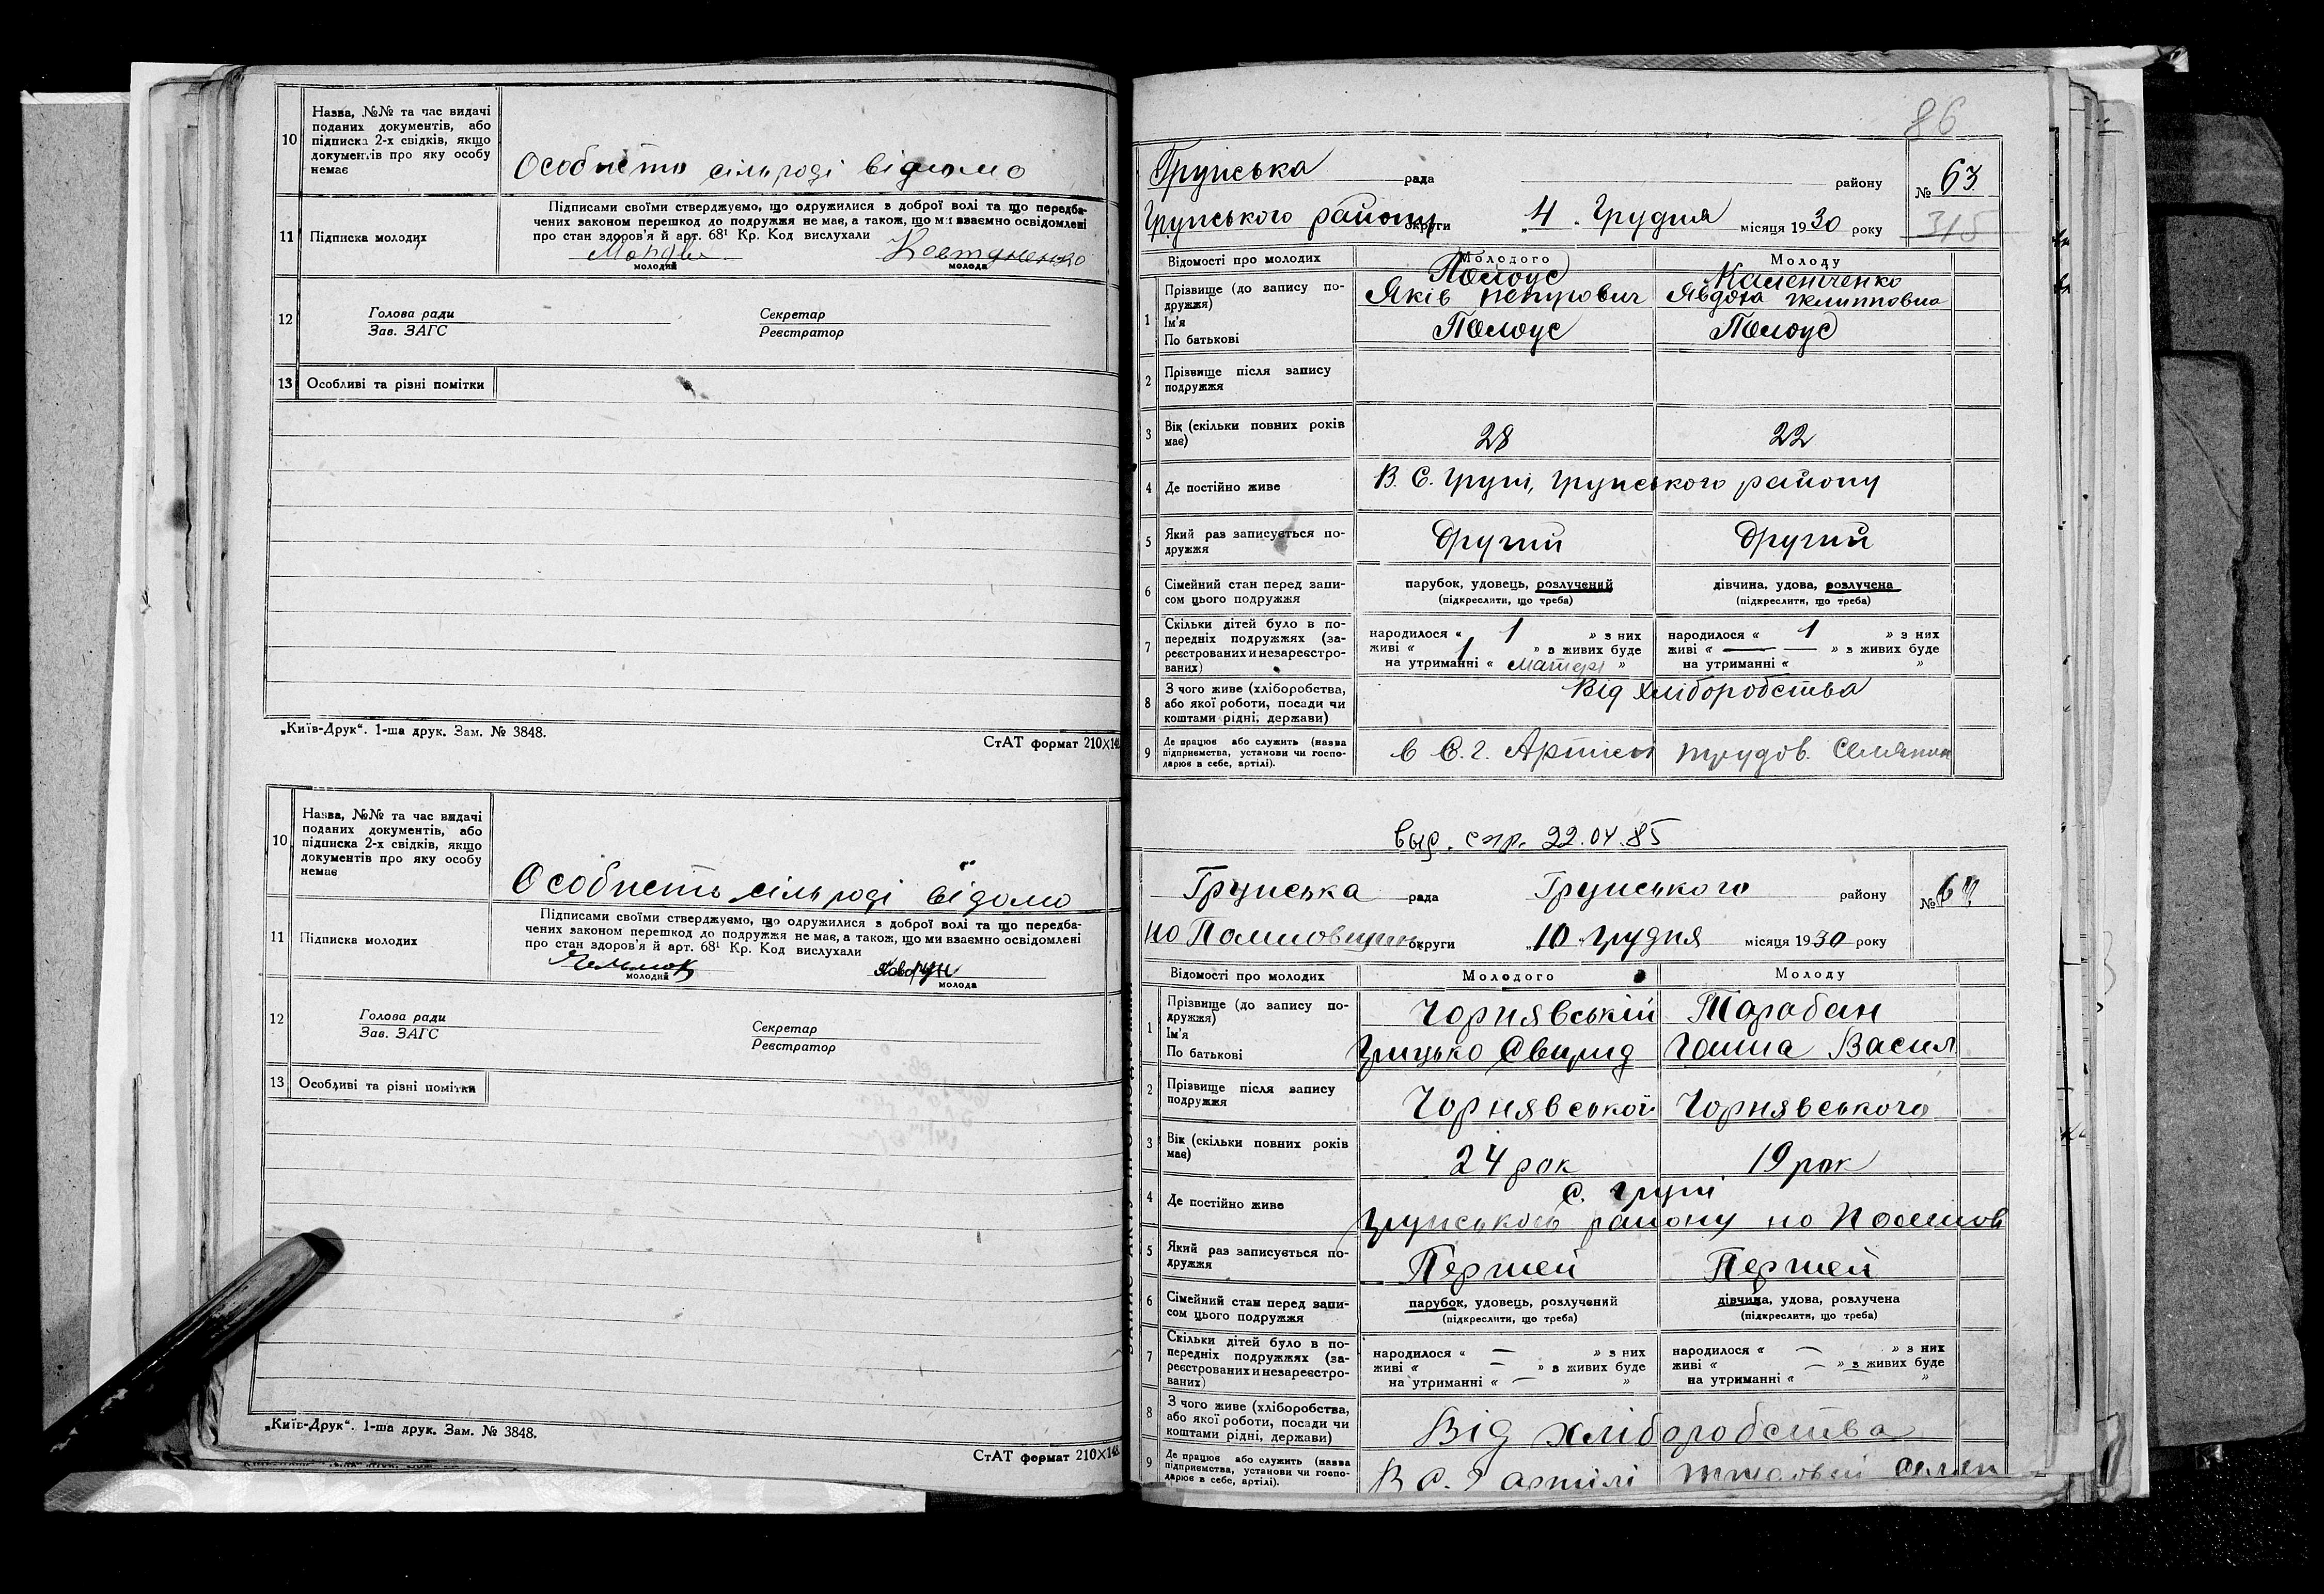 10
Назва, №№ та час видачі
поданих документів, або
підписка 2-х свідків, якщо
документів про яку особу
немає
Особисто сільраді відомо
11
Підписка молодих
Підписами своїми стверджуємо, що одружилися з доброї волі та що передба-
чених законом перешкод до подружжя не має, а також, що ми взаємно освідомлені
про стан здоров'я й арт. 68¹ Кр. Код вислухали
молодий молода
12
Голова ради Секретар
Зав. ЗАГС Реєстратор
13 Особливі та різні помітки
„Київ-Друк“. 1-ша друк. Зам. № 3848.
СтАТ формат 210×148
10
Назва, №№ та час видачі
поданих документів, або
підписка 2-х свідків, якщо
документів про яку особу
немає
Особисть сільраді відомо
11
Підписка молодих
Підписами своїми стверджуємо, що одружилися з доброї волі та що передба-
чених законом перешкод до подружжя не має, а також, що ми взаємно освідомлені
про стан здоров'я й арт. 68¹ Кр. Код вислухали
Ковтун
молодий молода
12
Голова ради Секретар
Зав. ЗАГС Реєстратор
13 Особливі та різні помітки
„Київ-Друк“. 1-ша друк. Зам. № 3848.
СтАТ формат 210×148
86
Грунська рада району № 63
Грунського району округи „4“ Грудня місяця 1930 року 315
Відомості про молодих Молодого Молоду
1
Прізвище (до запису по-
дружжя)
Ім'я
По батькові
Яків Петрович Явдоха
2
Прізвище після запису
подружжя
3
Вік (скільки повних років
має)
28 22
4 Де постійно живе
В. С. Груні, Грунського району
5
Який раз записується по-
дружжя
Другий Другий
6
Сімейний стан перед запи-
сом цього подружжя
парубок, удовець, розлучений дівчина, удова, розлучена
(підкреслити, що треба) (підкреслити, що треба)
7
Скільки дітей було в по-
передніх подружжях (за-
реєстрованих и незареєстро-
ваних)
народилося « 1 » з них народилося « 1 » з них
живі « 1 » з живих буде живі « — — » з живих буде
на утриманні « Матері » на утриманні « »
8
З чого живе (хліборобства,
або якої роботи, посади чи
коштами рідні, держави)
Від хліборобства
9
Де працює або служить (назва
підприємства, установи чи госпо-
дарює в себе, артілі).
в С. Г. Артілі трудов. Селянин
выд. спр. 22.04.85
Грунська рада Грунського району № 64
округи „10“ Грудня місяця 1930 року
Відомості про молодих Молодого Молоду
1
Прізвище (до запису по-
дружжя)
Ім'я
По батькові
Чорнявській Тарабан
Грицько Свирид Ганна Васил
2
Прізвище після запису
подружжя
Чорнявської Чорнявського
3
Вік (скільки повних років
має)
24 рок 19 рок
4 Де постійно живе
С. Груні
району
5
Який раз записується по-
дружжя
Першей Першей
6
Сімейний стан перед запи-
сом цього подружжя
парубок, удовець, розлучений дівчина, удова, розлучена
(підкреслити, що треба) (підкреслити, що треба)
7
Скільки дітей було в по-
передніх подружжях (за-
реєстрованих и незареєстро-
ваних)
народилося « — » з них народилося « — » з них
живі « — » з живих буде живі « — » з живих буде
на утриманні « — » на утриманні « »
8
З чого живе (хліборобства,
або якої роботи, посади чи
коштами рідні, держави)
Від хліборобства
9
Де працює або служить (назва
підприємства, установи чи госпо-
дарює в себе, артілі).
В С. Г артілі Селян